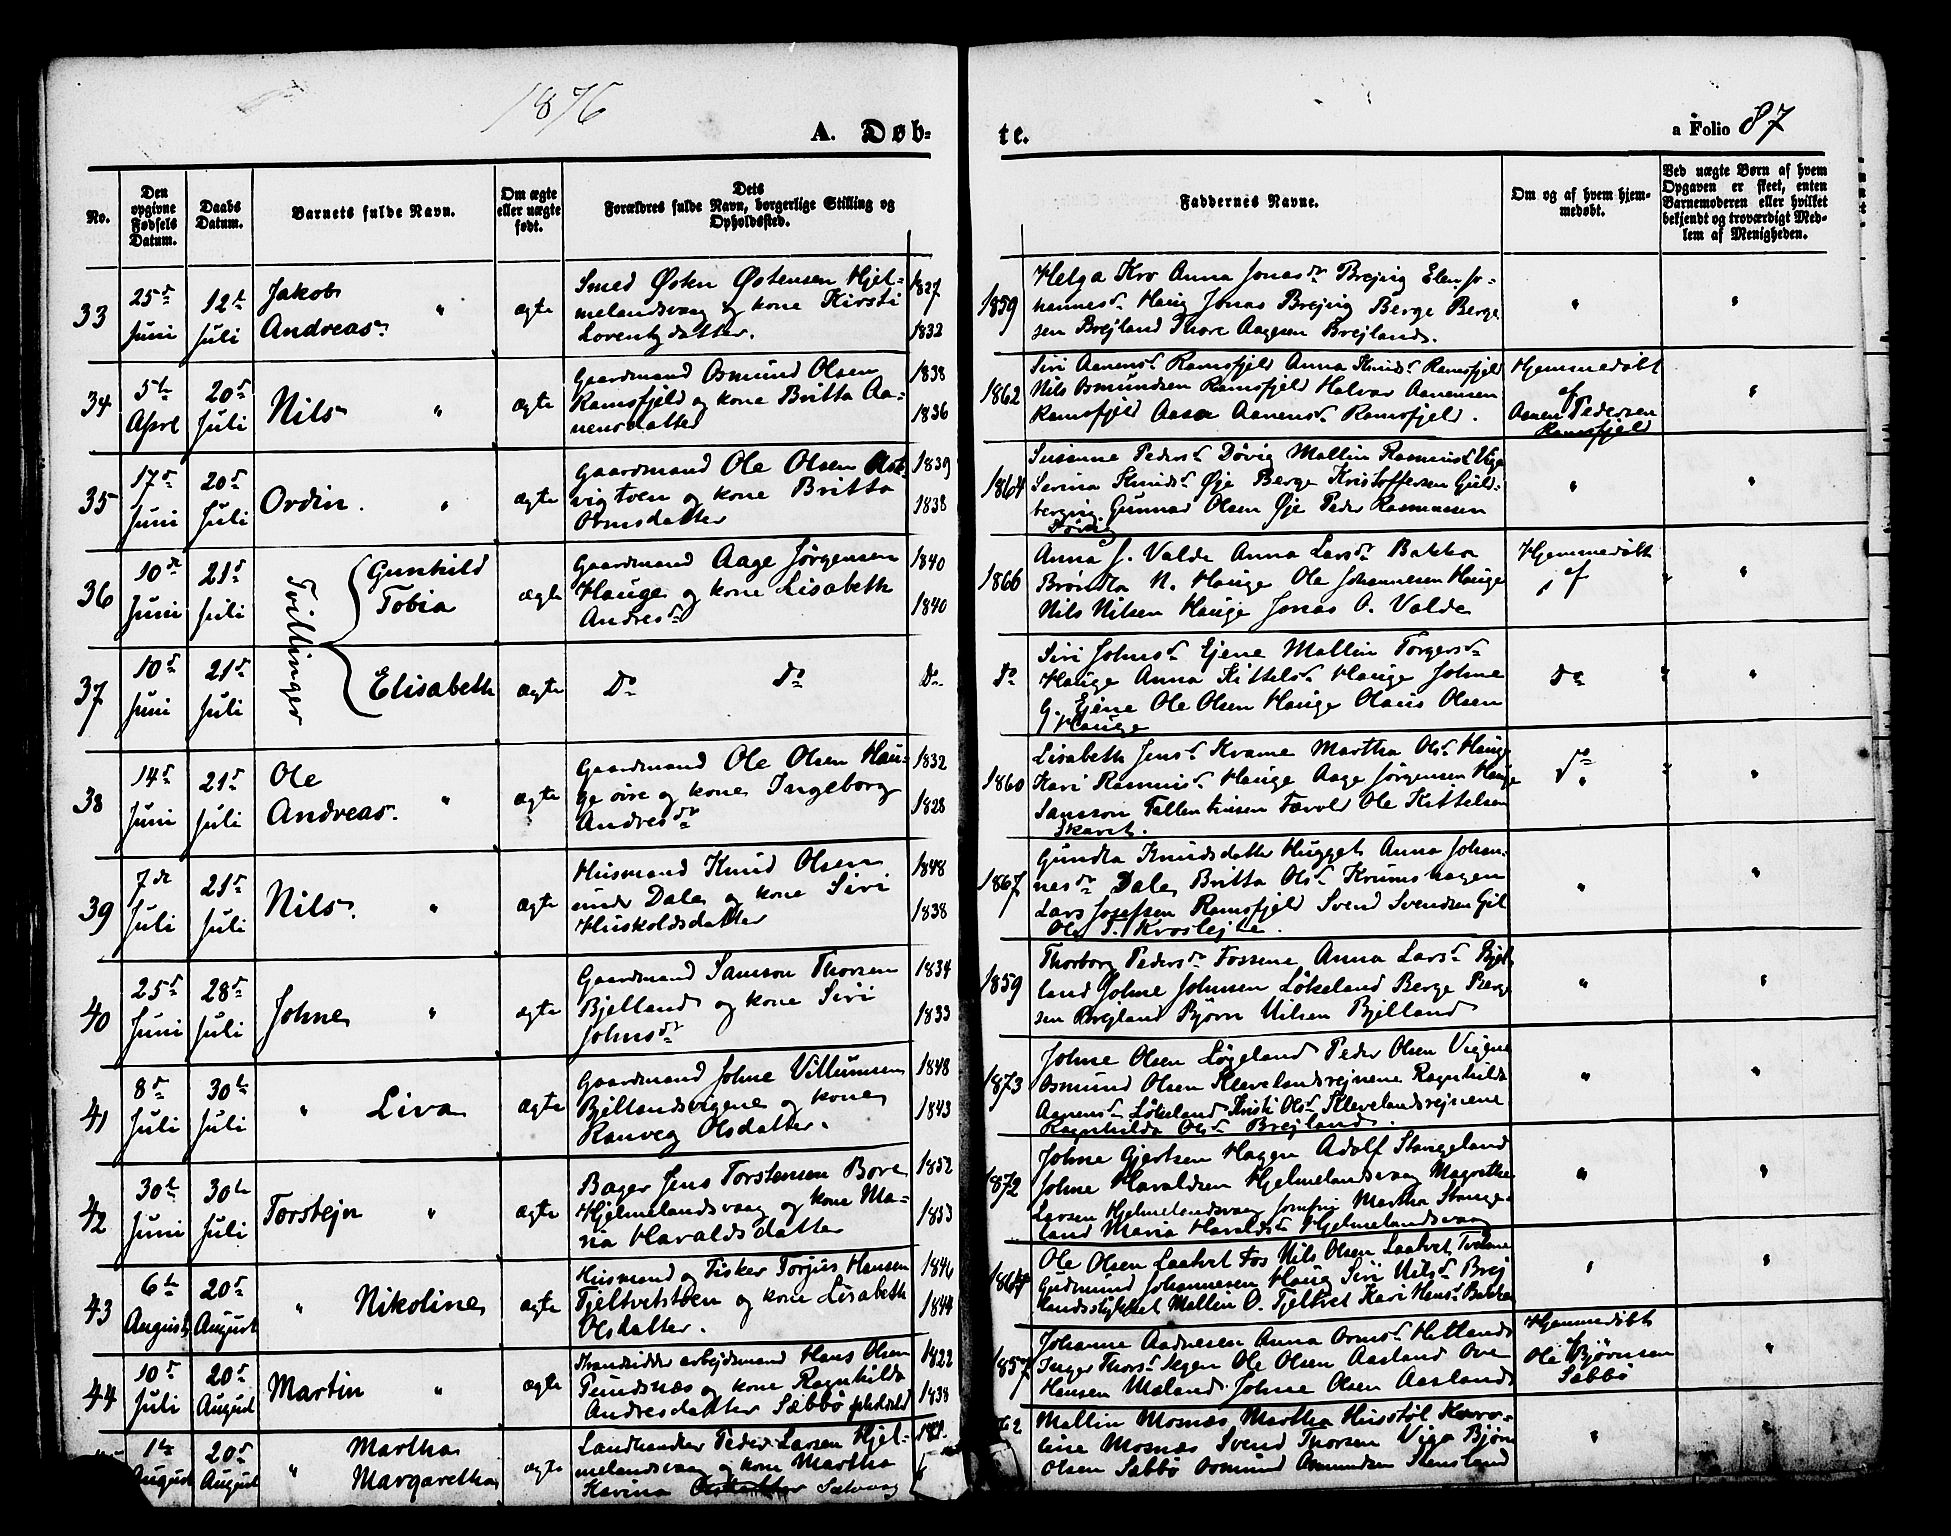 1876
A. Døb-
te.
a Folio 87
No.
Den opgivne Fødsels Datum.
Daabs Datum.
Barnets fulde Navn.
Om ægte eller uægte født.
Dets Forældres fulde Navn, borgerlige Stilling og Opholdssted.
Faddernes Navne.
Om og af hvem hjemmedøbt.
Ved uægte Børn af hvem Opgaven er skeet, enten Barnemoderen eller hvilket bekjendt og troværdigt Medlem af Menigheden.
33 25d Juni 12t Juli Jakob Andreas " ægte
Smed Østen Østensen Hjel-
melandsvaag og kone Kirsti
Lorentzdatter.
1827
1832
1859
Helga Kro Anna Jonasdr Brejvig Elen Jo-
hannesd. Haug Jonas Brejvig Berge Berge
sen Brejland Thore Aagesen Brejland.
" "
34 5te April 20d Juli Nils " ægte
Gaardmand Osmund Olsen
Ramsfjeld og kone Britta Aa-
nensdatter
1838
1836
1862
Siri Aanensd. Ramsfjeld Anna Knudsd. Ramsfjeld
Nils Osmundsen Ramsfjeld Halvor Aanensen
Ramsfjeld Aasa Aanensd. Ramsfjeld.
Hjemmedøbt
af
Aanen Pedersen
Ramsfjeld
"
35 17d Juni 20d Juli Ordin. " ægte
Gaardmand Ole Olsen
vigtven og kone Britta
Ormsdatter
1839
1838
1864
Susanne Pedersd. Døvig Mallin Rasmusd. Viga
Serina Knudsd. Øje Berge Kristoffersen Guld-
bergvig Gunnar Olsen Øje Peder Rasmussen
Døvig
" "
36 10de Juni 21d Juli Tvillinger Gunhild Tobia ægte
Gaardmand Aage Jørgensen
Hauge og kone Lisabeth
Andresdr
1840
1840
1866
Anna J. Valde Anna Larsdr Bakka
Brøndla N. Hauge Ole Johannesen Hauge
Nils Nilsen Hauge Jonas O. Valde
Hjemmedøbt
af
"
37 10d Juni 21d Juli Elisabeth ægte
Do Do
Do
Do
Siri Johnsd. Ejene Mallin Torgersdr
Hauge Anna Kittelsd. Hauge Johne
G. Ejene Ole Olsen Hauge Olaus Olsen
Hauge
Do
"
38 14d Juni 21d Juli Ole Andreas. " ægte
Gaardmand Ole Olsen Hau-
ge øvre og kone Ingeborg
Andresdr
1832
1828
1860
Lisabeth Jensd. Kvame Martha Olsd. Hauge
Kari Rasmusd. Hauge Aage Jørgensen Hauge
Samson Fallentinsen Færvold Ole Kittelsen
Skaret.
Do
"
39 7de Juli 21d Juli Nils. " ægte
Husmand Knud Olsen
under Dale og kone Siri
Huskoldsdatter
1848
1838
1867
Gundla Knudsdatter Hugget Anna Johan-
nesdr Dale Britta Olsd. Krumshagen
Lars Josefsen Ramsfjeld Svend Svendsen Gil
Ole T. Kroslejte.
" "
40 25d Juni 28d Juli Johne " ægte
Gaardmand Samson Thorsen
Bjelland og kone Siri
Johnsdr
1834
1833
1859
Thorborg Pedersdr Fossene Anna Larsd. Bjel
land Johne Johnsen Løkeland Berge Berge
sen Brejland Bjørn Nilsen Bjelland
" "
41 8d Juli 30te Juli " Liva ægte
Gaardmand Johne Villumsen
Bjellandsvigene og kone
Ranveg Olsdatter.
1848
1843
1873
Johne Olsen Løgeland Peder Olsen Vigene
Osmund Olsen Klevelandsvejnene Ragnhilda
Aanensd. Løkeland Kristi Olsd. Klevelandsvejnene
Ragnhilda Olsd. Brejland.
" "
42 30te Juni 30te Juli Torstejn " ægte
Bager Jens Torstensen Bore
Hjelmelandsvaag og kone Ma-
na Haraldsdatter
1852
1853
1872
Johne Gjertsen Hagen Adolf Stangeland
Johne Haraldsen Hjelmelandsvaag Magrethe
Larsen Hjelmelandsvaag Jomfru Martha Stange-
land Maria Haraldsd. Hjelmelandsvaag
" "
43 6te August 20d August " Nikoline ægte
Husmand og Fisker Torjus Hansen
Tjeltvetstøen og kone Lisabeth
Olsdatter.
1846
1844
1864
Ole Olsen Laatvet Fos Nils Olsen Laatvet Tvetane
Gudmund Johannesen Haug Siri Nilsd. Brej
landsstykket Mallin O. Tjeltvet Kari Hansd. Bakka
" "
44 10d Juli 20d August Martin " ægte
Strandsidder arbejdsmand Hans Olsen
Pundsnæs og kone Ragnhilda
Andresdatter Sæbbø
1822
1838
1857
Johanne Aadnesen Anna Ormsd. Hetland
Inger Thorsd. Segen Ole Olsen Aasland Ove
Hansen Meland Johne Olsen Aasland
Hjemmedøbt
af
Ole Bjørnsen
Sæbbø
"
1te August 20d August " Martha Margaretha ægte
Landhandler Peder Larsen Hjel-
melandsvaag og kone Martha
Karina
62
Mallin Mosnæs Martha Husstøl Karo-
line Mosnæs Svend Thorsen Viga Bjørn
Olsen Sæbbø Osmund Osmundsen Stensland
" "